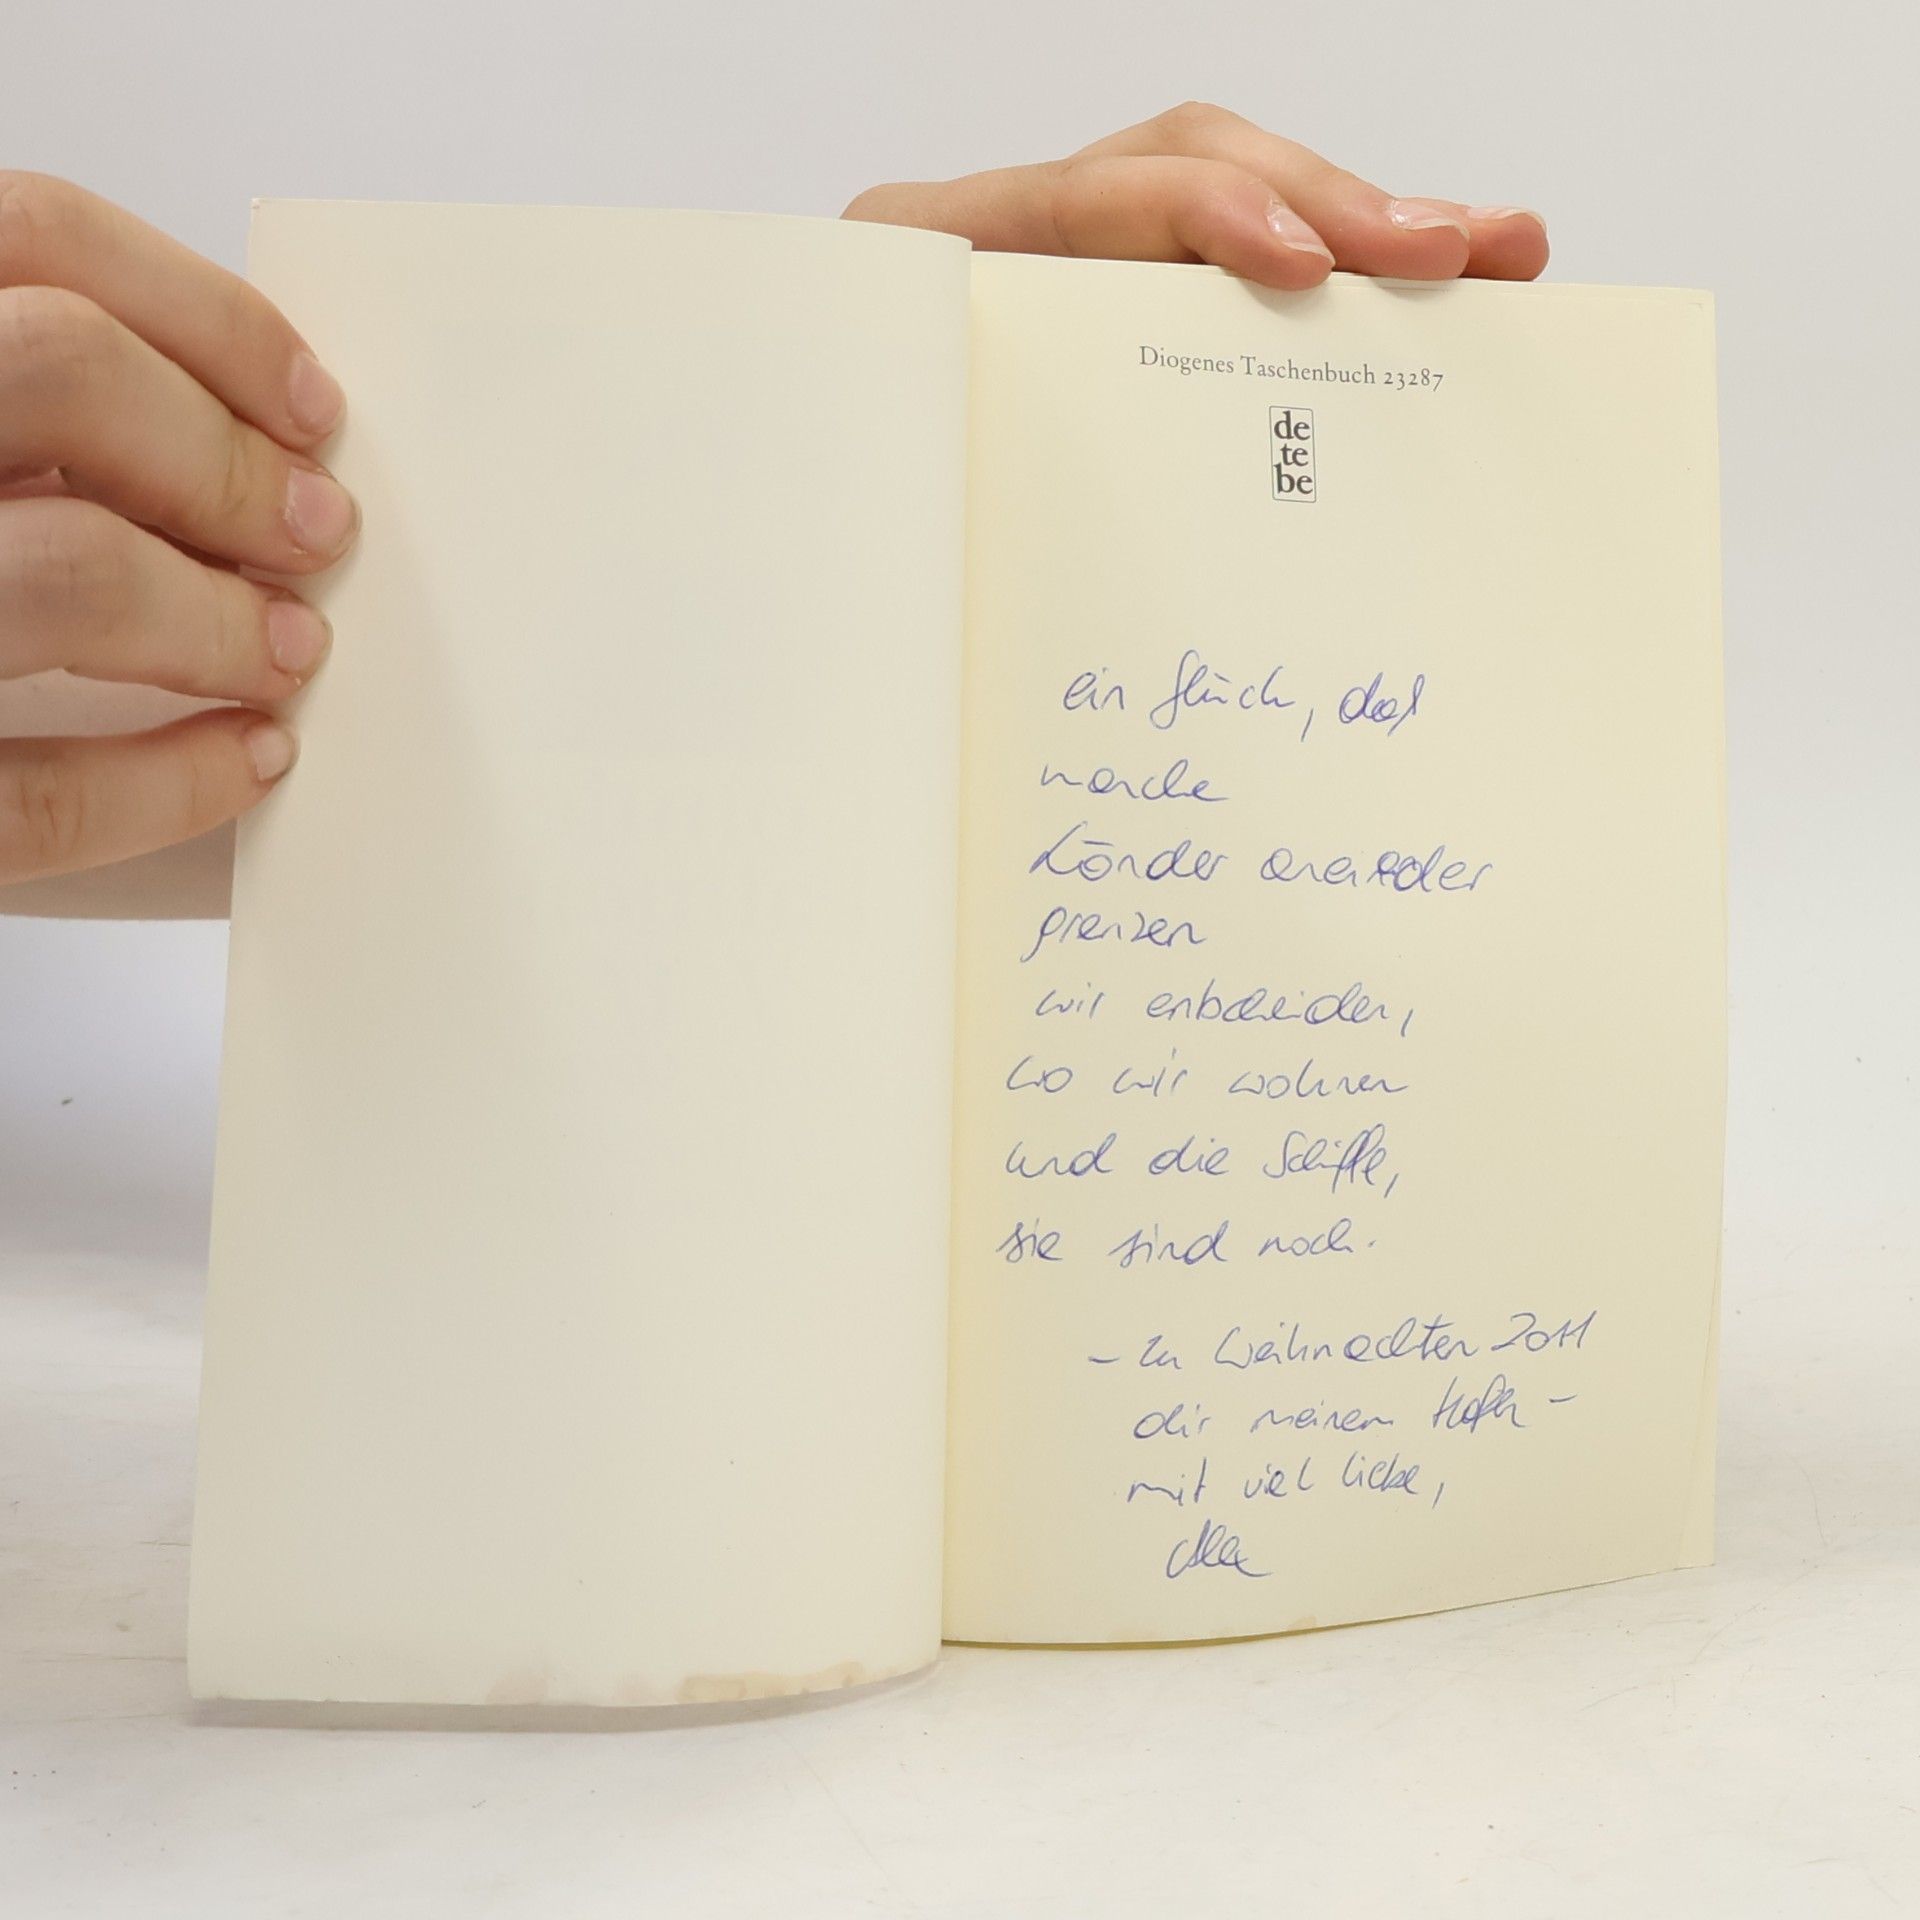 Diogenes Taschenbuch 23287
de
te
be
ein Glück, daß
manche
Länder aneinander
grenzen
wir entscheiden,
wo wir wohnen
und die Schiffe,
sie sind noch.
– Zu Weihnachten 2011
dir meinem Hafen –
mit viel Liebe,